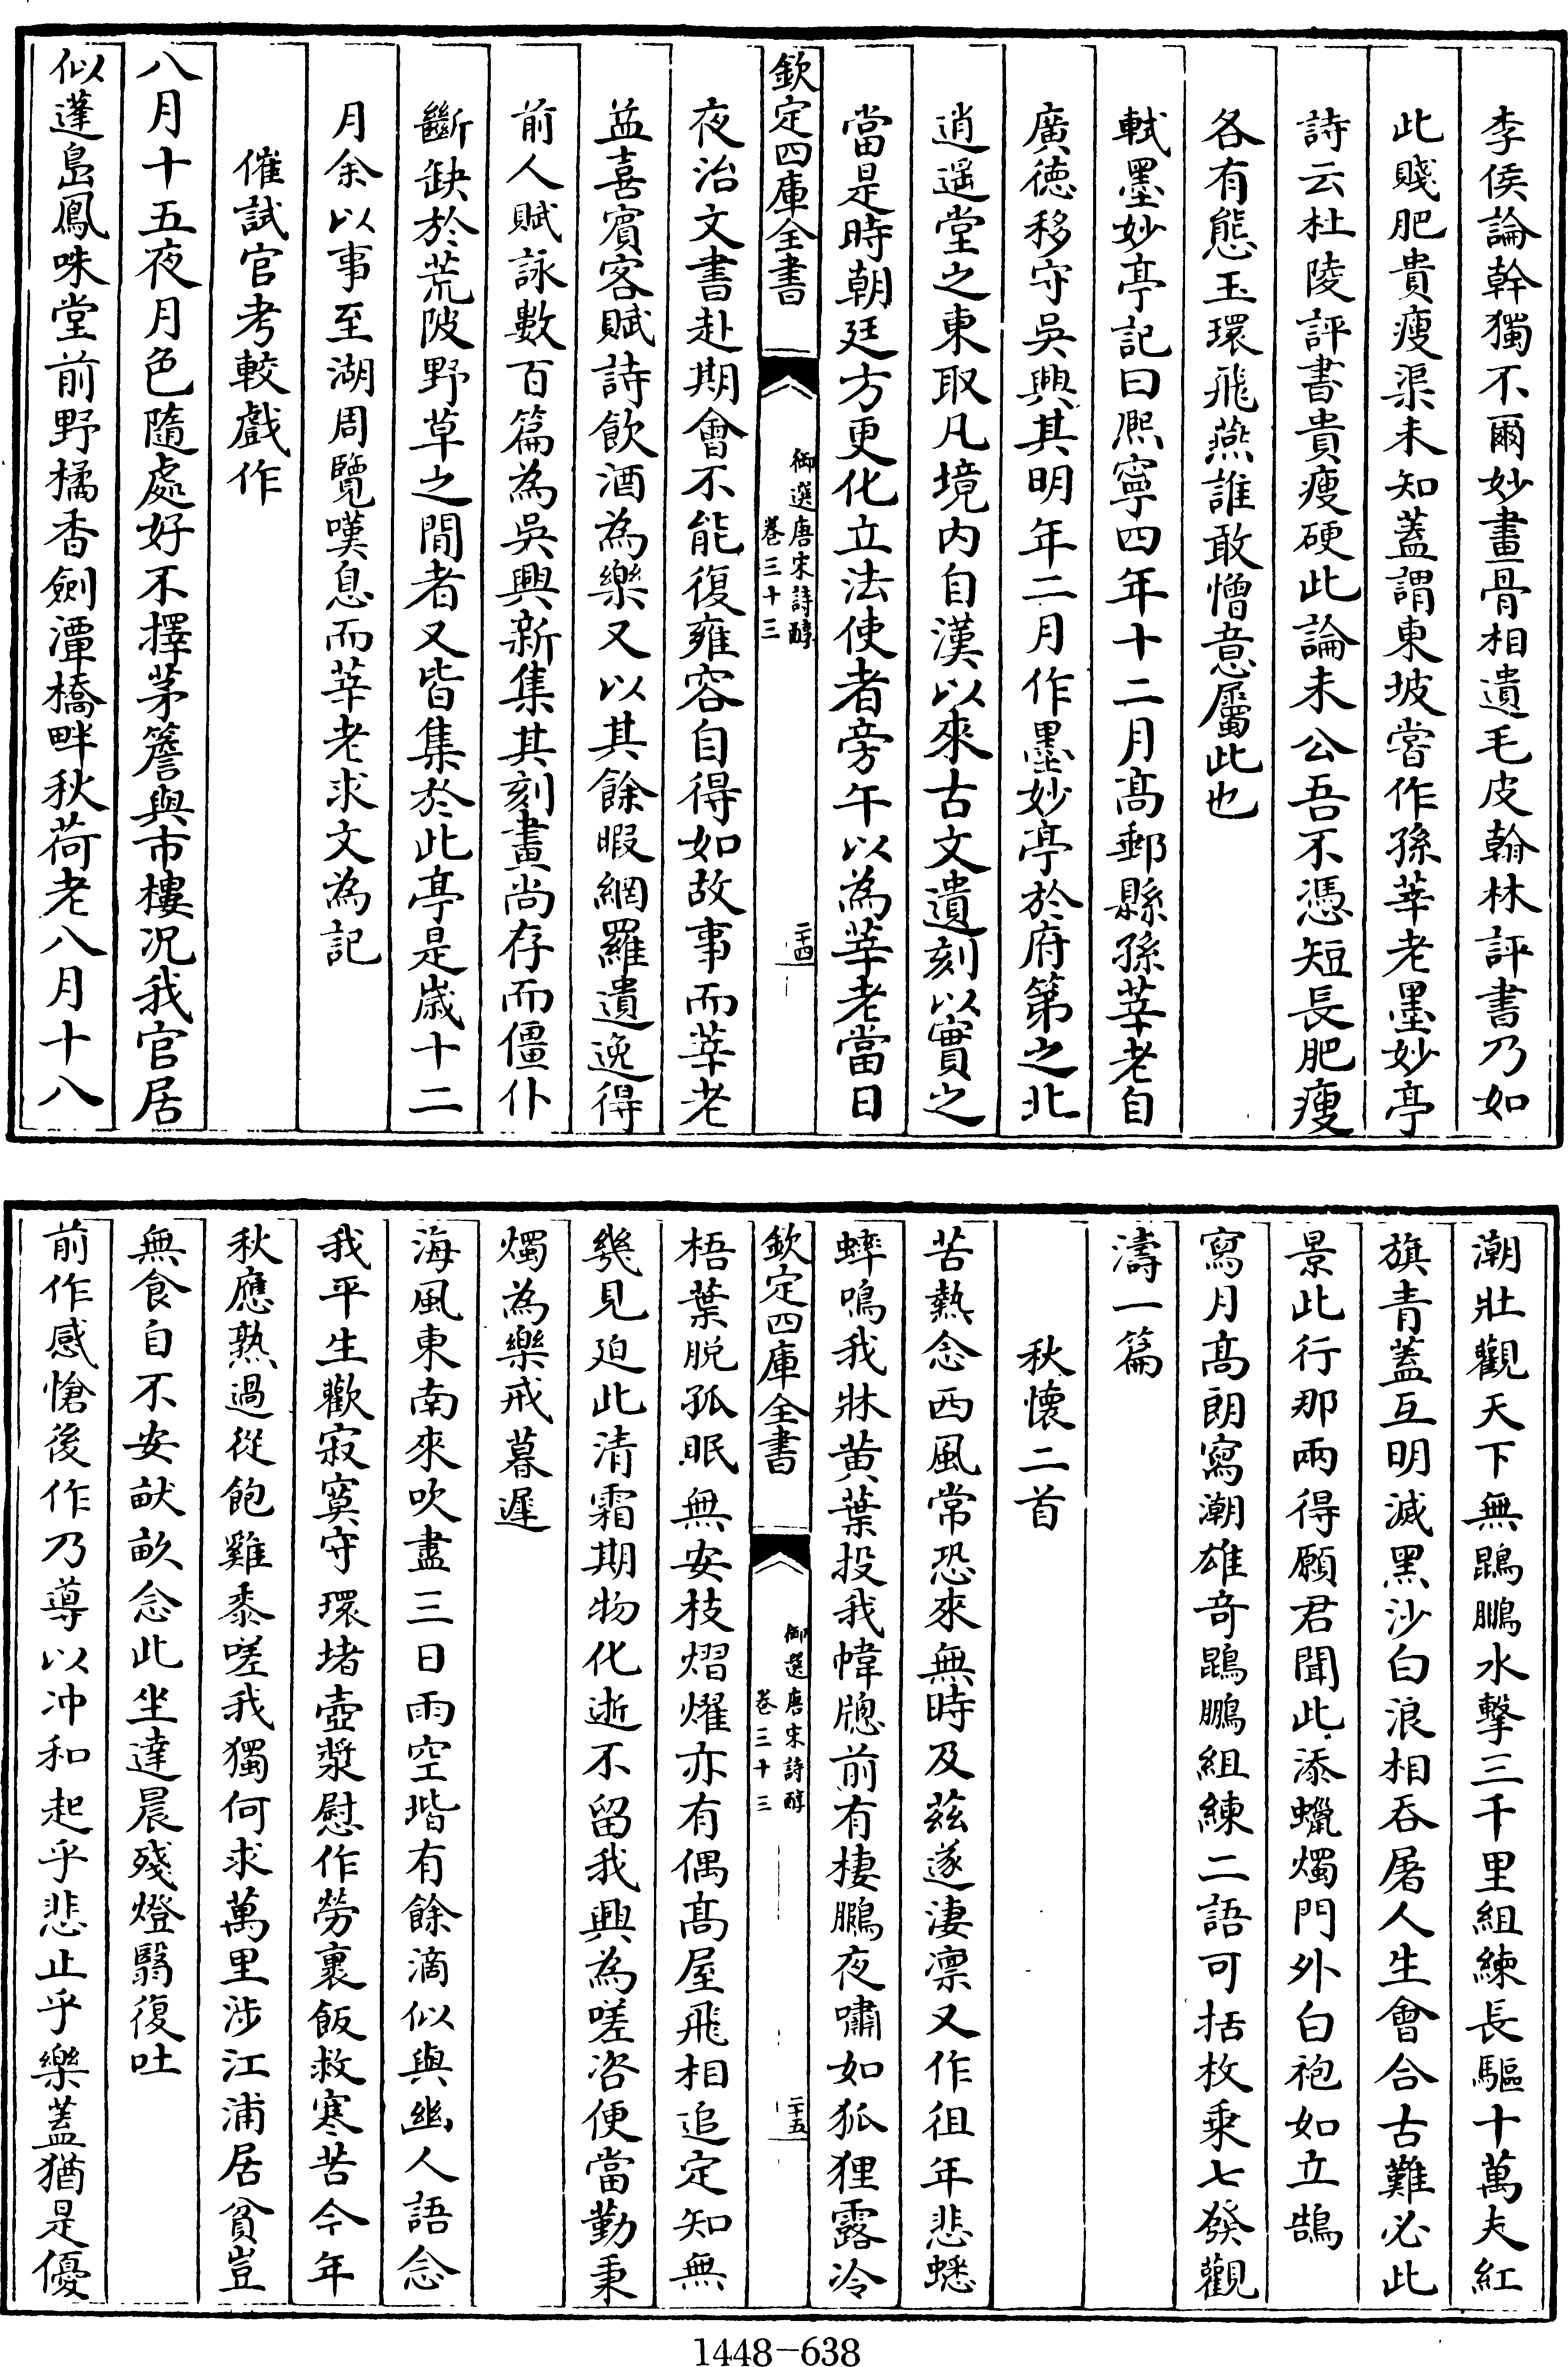 李侯論幹獨不爾妙畫骨相遺毛皮翰林評書乃如
此賤肥貴瘦渠未知蓋謂東坡嘗作孫莘老墨妙亭
詩云杜陵評書貴瘦硬此論未公吾不憑短長肥瘦
各有態玉環飛燕誰敢憎意屬此也
軾墨妙亭記曰熈寧四年十二月髙郵縣孫莘老自
廣徳移守吳興其明年二月作墨妙亭於府第之北
逍遥堂之東取凡境内自漢以來古文遺刻以實之
當是時朝廷方更化立法使者旁午以為莘老當日
欽定四庫全書
御選唐宋詩醇
卷三十三
二十四
夜治文書赴期會不能復雍容自得如故事而莘老
益喜賓客賦詩飲酒為樂又以其餘暇網羅遺逸得
前人賦詠數百篇為吳興新集其刻畫尚存而僵仆
斷缺於荒陂野草之間者又皆集於此亭是歳十二
月余以事至湖周覽嘆息而莘老求文為記
催試官考較戲作
八月十五夜月色隨處好不擇茅簷與市樓况我官居
似蓬島鳳咮堂前野橘香劍潭橋畔秋荷老八月十八
潮壯觀天下無鵾鵬水擊三千里組練長驅十萬夫紅
旗青蓋互明滅黑沙白浪相吞屠人生會合古難必此
景此行那兩得願君聞此添蠟燭門外白袍如立鵠
寫月髙朗寫潮雄奇鵾鵬組練二語可括枚乗七發觀
濤一篇
秋懷二首
苦熱念西風常恐來無時及茲遂淒凛又作徂年悲蟋
蟀鳴我牀黄葉投我幃牕前有棲鵩夜嘯如狐狸露冷
欽定四庫全書
御選唐宋詩醇
卷三十三
二十五
梧葉脱孤眠無安枝熠燿亦有偶髙屋飛相追定知無
幾見廹此清霜期物化逝不留我興為嗟咨便當勤秉
燭為樂戒暮遲
海風東南來吹盡三日雨空堦有餘滴似與幽人語念
我平生歡寂寞守環堵壺漿慰作勞裹飯救寒苦今年
秋應熟過從飽雞黍嗟我獨何求萬里涉江浦居貧豈
無食自不安畎畝念此坐達晨殘燈翳復吐
前作感愴後作乃導以冲和起乎悲止乎樂蓋猶是優
1448-638